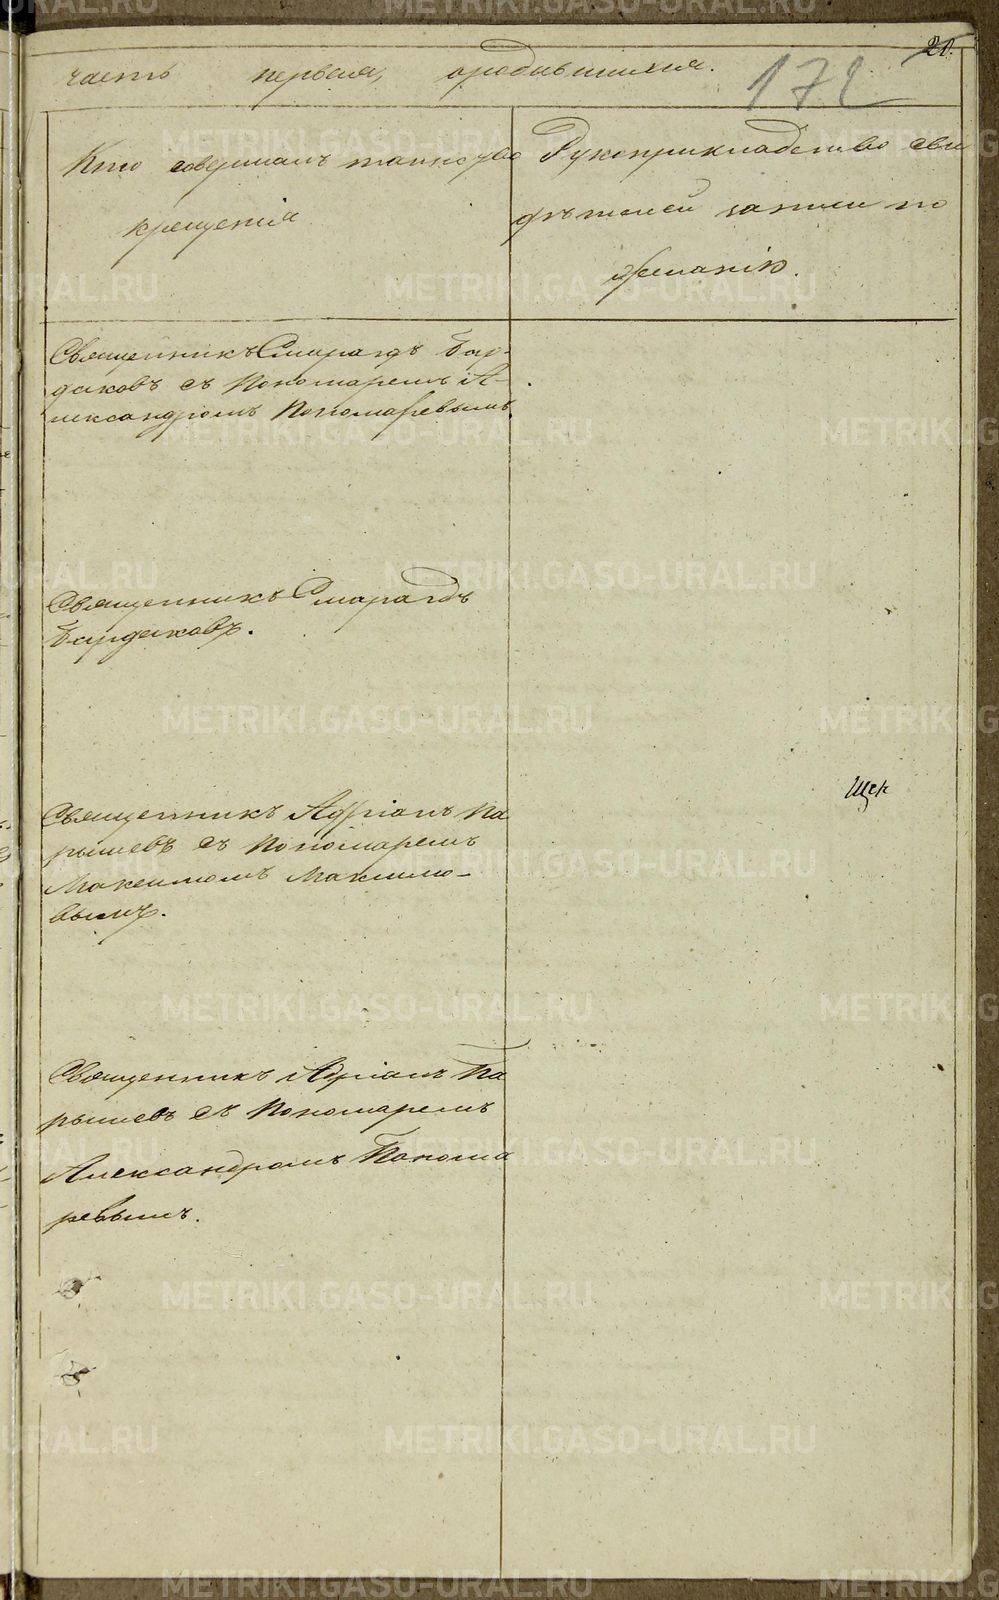 20.
часть первая, о родившихся.
172
Кто совершалъ таинство
крещенія
Рукоприкладство сви
дѣтелей записи по
желанію.
Священникъ Смарагдъ Бар-
даковъ съ Пономаремъ А-
лександромъ Пономаревымъ.
Священникъ Смарагдъ
Бардаковъ.
Священникъ Адріанъ Па
рышевъ съ Пономаремъ
Максимомъ Максимо-
вымъ.
Щек
Священникъ Адріанъ Па
рышевъ съ Пономаремъ
Александромъ Понома
ревымъ.
METRIKI.GASO-URAL.RU